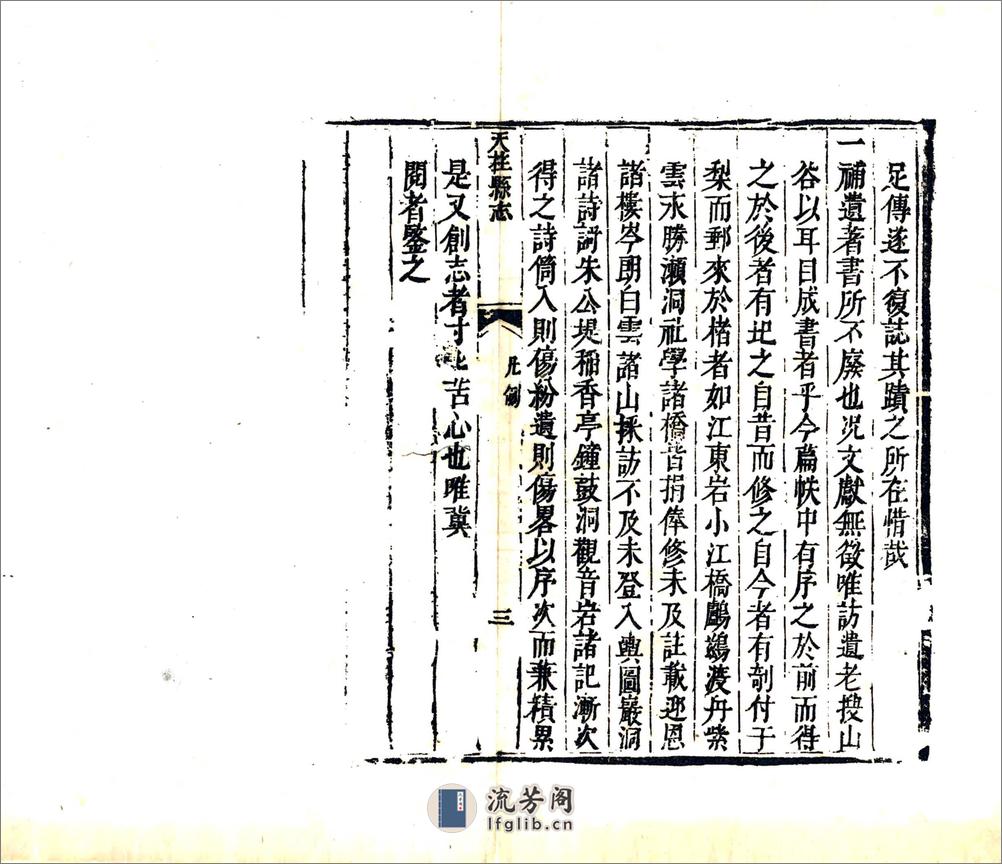 足傳遂不復誌其蹟之所在惜哉
一補遺著書所不廢也况文獻無徵唯訪遺老搜山
谷以耳目成書者乎今篇帙中有序之於前而得
之於後者有圯之自昔而修之自今者有剞付于
梨而郵來於楮者如江東岩小江橋鸕鷀渡丹紫
雲水勝瀨洞社學諸橋皆捐俸修未及註載迎恩
諸樓岑朗白雲諸山採訪不及未登入輿圖巖洞
諸詩訶朱公堤稲香亭鐘鼓洞觀音岩諸記漸次
得之詩筒入則傷粉遺則傷畧以序次而兼積累
天柱縣志
凡例
三
是又創志者寸苦心也唯冀
閱者鑒之
流芳阁
lfglib.cn